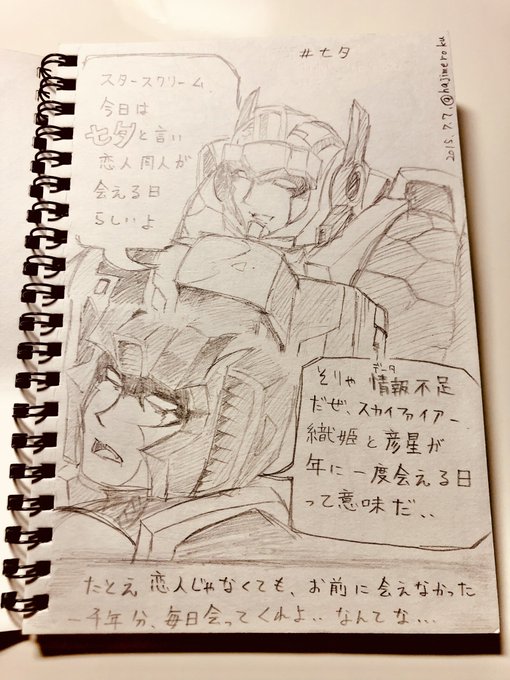 #七夕
2015.7.7.@hajimeroku
スタースクリーム、
今日は
七夕と言い
恋人同人が
会える日
らしいよ
そりゃ 情報不足
データ
だぜ、スカイファイアー
織姫と彦星が
年に一度会える日
って意味だ..
たとえ恋人じゃなくても、お前に会えなかった
一千年分、毎日会ってくれよ‥なんてな...